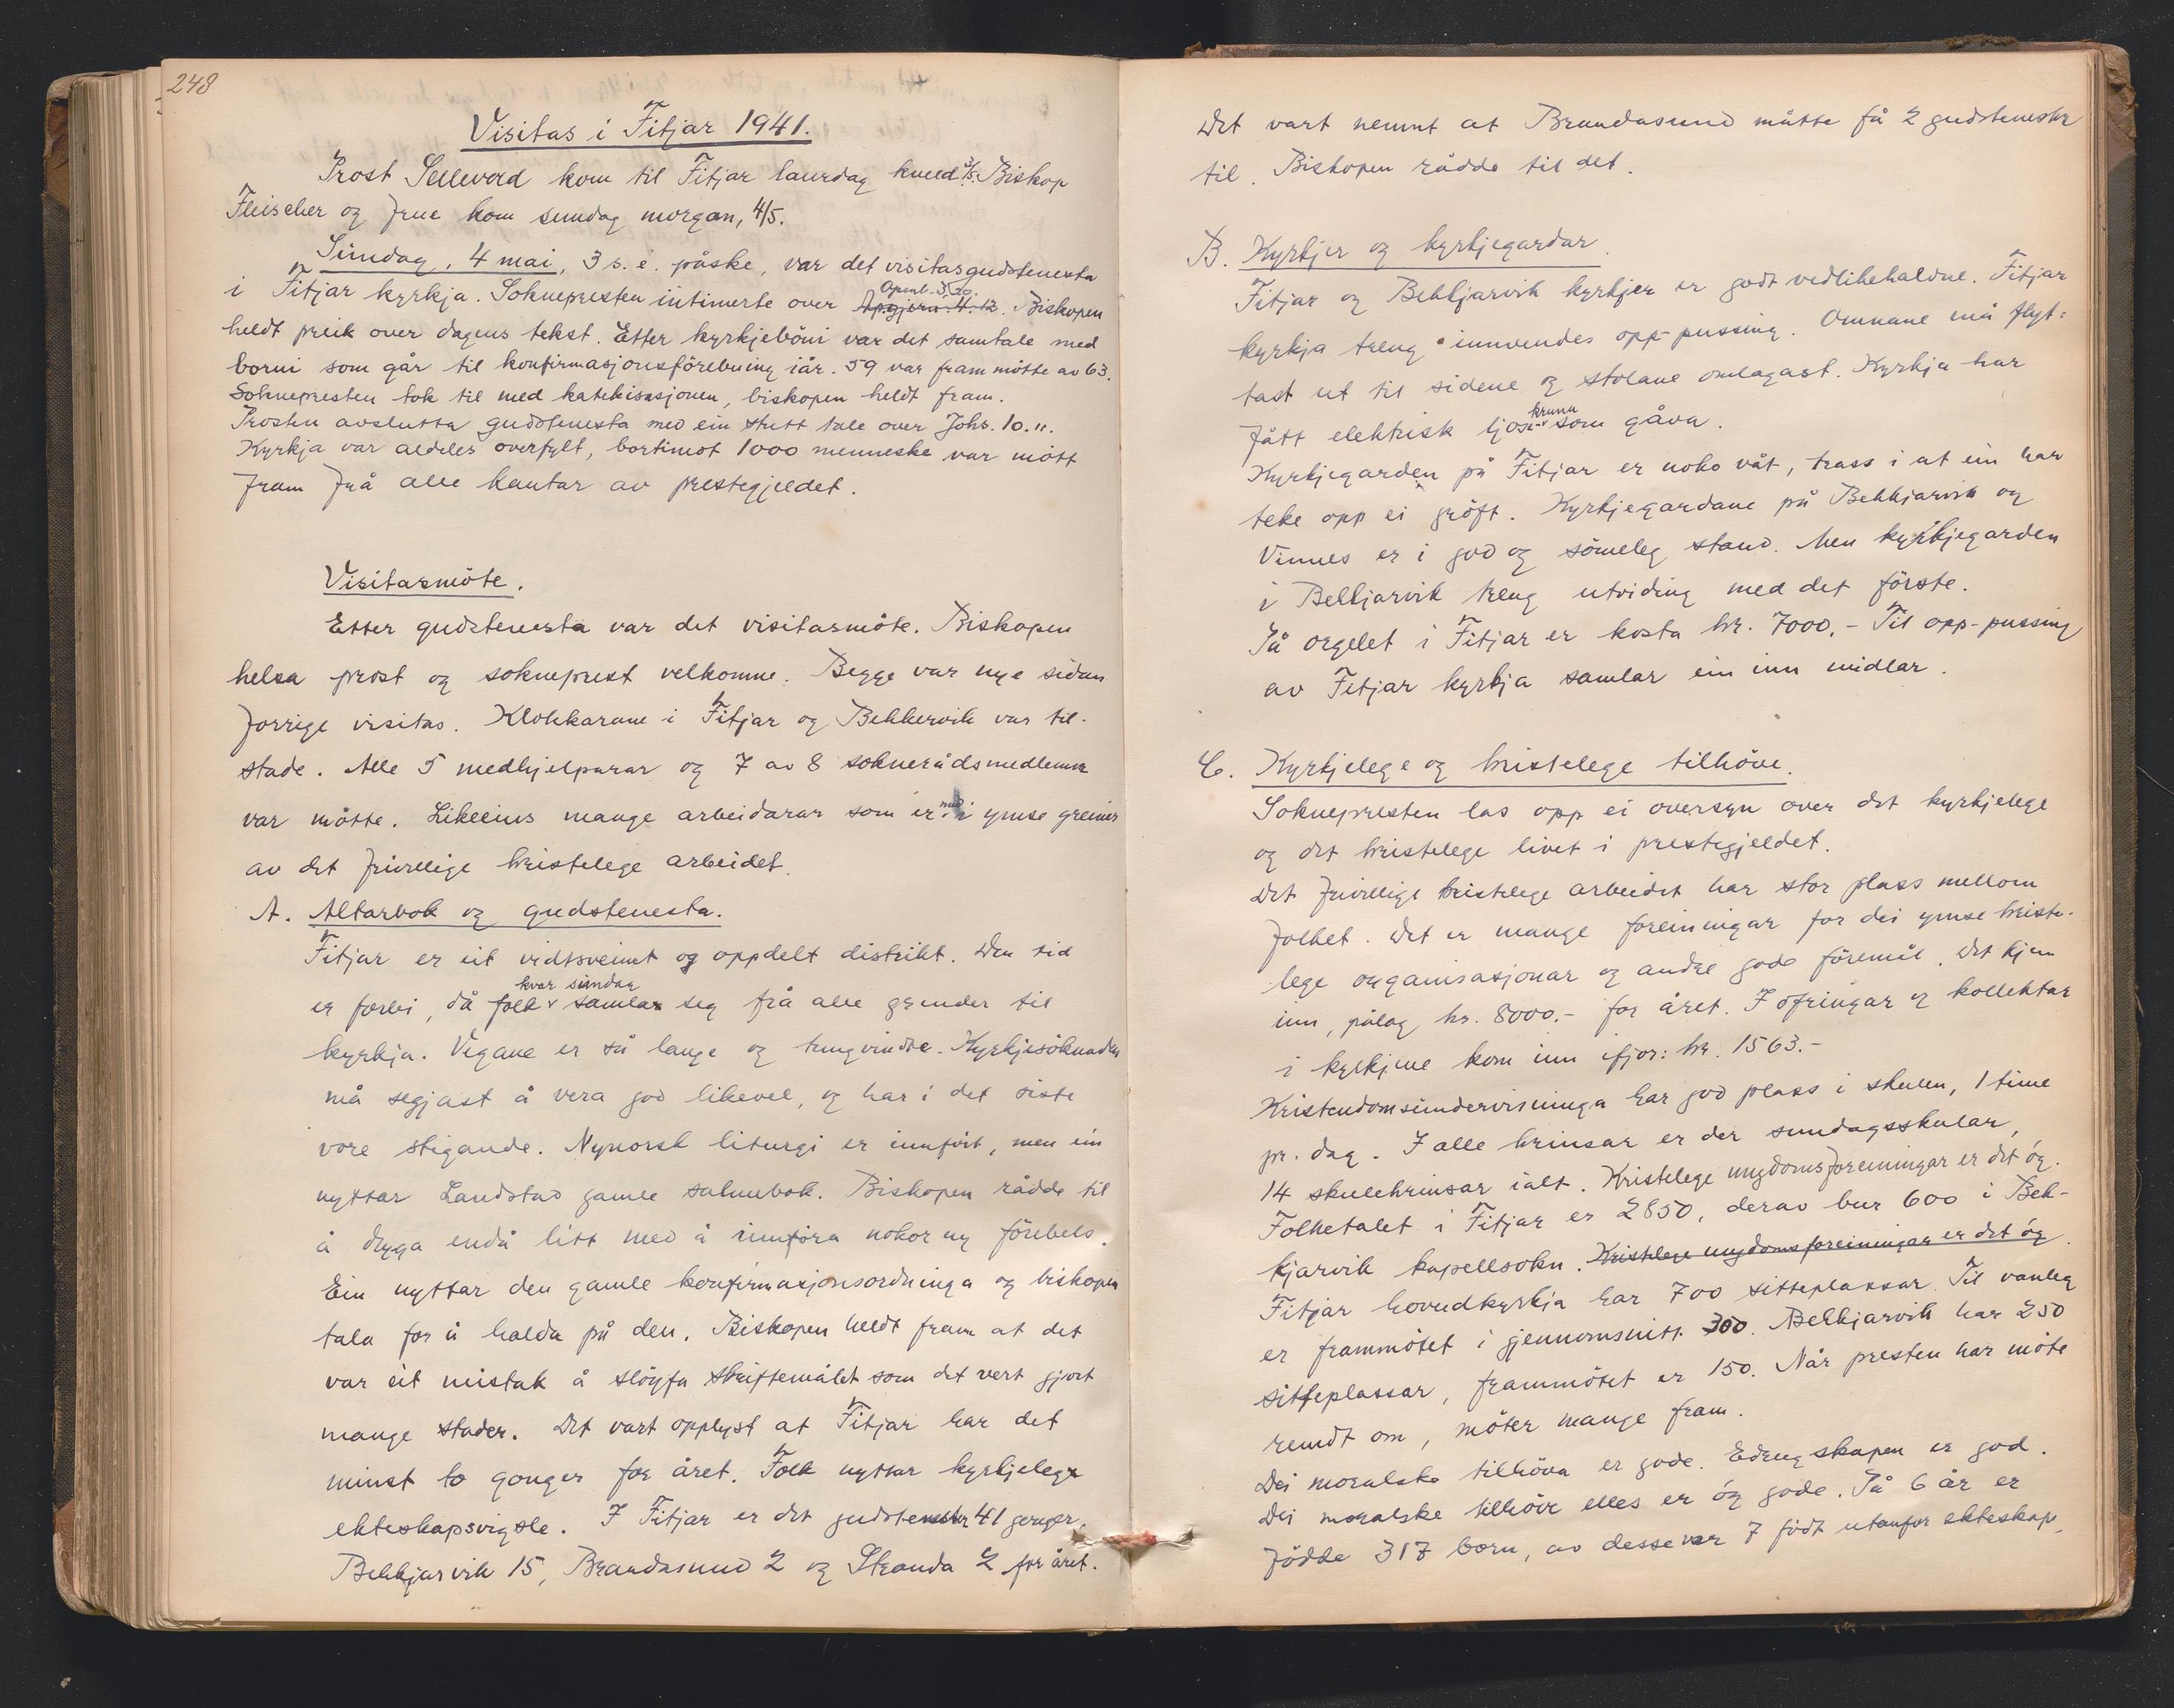 248
Visitas i Fitjar 1941.
Prost Sellevold kom til Fitjar laurdag kveld 3/5. Biskop
Fleischer og frue kom sundag morgan, 4/5.
Sundag, 4 mai, 3 s. e. påske, var det visitasgudstenesta
i Fitjar kyrkja. Soknepresten intimerte over Openb. 3, 20. Apgjern. 4. 12. Biskopen
heldt preik over dagens tekst. Etter kyrkjebøni var det samtale med
borni som går til konfirmasjonsförebuing iår. 59 var fram møtte av 63.
Soknepresten tok til med katekisasjonen, biskopen heldt fram.
Prosten avslutta gudstenesta med ein stutt tale over Johs. 10. 11.
Kyrkja var aldeles overfylt, bortimot 1000 menneske var møtt
fram frå alle kantar av prestegjeldet.
Visitasmöte.
Etter gudstenesta var det visitasmöte. Biskopen
helsa prost og sokneprest velkomne. Begge var nye sidan
forrige visitas. Klokkarane i Fitjar og Bekkervik var til-
stade. Alle 5 medhjelparar og 7 av 8 soknerådsmedlemer
var møtte. Likeeins mange arbeidarar som er med i ymse greiner
av det frivillige kristelege arbeidet.
A. Altarbok og gudstenesta.
Fitjar er eit vidtsveimt og oppdelt distrikt. Den tid
er forbi, då folk kvar sundag samlar seg frå alle grender til
kyrkja. Vegane er så lange og tungvindte. Kyrkjesöknaden
må segjast å vera god likevel, og har i det siste
vore stigande. Nynorsk liturgi er innfört, men ein
nyttar Landstad gamle salmebok. Biskopen rådde til
å dryga endå litt med å innföra nokor ny förebels.
Ein nyttar den gamle konfirmasjonsordninga og biskopen
tala for å halda på den. Biskopen heldt fram at det
var eit mistak å slöyfa skriftemålet som det vert gjort
mange stader. Det vart opplyst at Fitjar har det
minst to gonger for året. Folk nyttar kyrkjelege
ekteskapsvigsle. I Fitjar er det gudstenester 41 gonger,
Bekkjarvik 15, Brandasund 2 og Stranda 2 for året.
Det vart nemnt at Brandasund måtte få 2 gudstenester
til. Biskopen rådde til det.
B. Kyrkjer og kyrkjegardar.
Fitjar og Bekkjarvik kyrkjer er godt vedlikehaldne. Fitjar
kyrkja treng innvendes opp-pussing. Omnane må flyt-
tast ut til sidene og stolane omlagast. Kyrkja har
fått elektrisk ljose-kruna som gåva.
Kyrkjegarden på Fitjar er noko våt, trass i at ein har
teke opp ei gröft. Kyrkjegardane på Bekkjarvik og
Vinnes er i god og sömeleg stand. Men kyrkjegarden
i Bekkjarvik treng utviding med det förste.
På orgelet i Fitjar er kosta kr. 7000.- Til opp-pussing
av Fitjar kyrkja samlar ein inn midlar.
C. Kyrkjelege og kristelege tilhöve.
Soknepresten las opp ei oversyn over det kyrkjelege
og det kristelege livet i prestegjeldet.
Det frivillige kristelege arbeidet har stor plass mellom
folket. Det er mange foreiningar for dei ymse kriste-
lege organisasjonar og andre gode föremål. Det kjem
inn, pålag kr. 8000.- for året. I ofringar og kollektar
i kyrkjene kom inn ifjor: kr. 1563.-
Kristendomsundervisninga har god plass i skulen, 1 time
pr. dag. I alle krinsar er der sundagsskular,
14 skulekrinsar ialt. Kristelege ungdomsforeiningar er det óg.
Folketalet i Fitjar er 2850, derav bur 600 i Bek-
kjarvik kapellsokn. Kristelege ungdomsforeiningar er det óg.
Fitjar hovudkyrkja har 700 sitteplassar. Til vanleg
er frammötet i gjennomsnitt 300. Bekkjarvik har 250
sitteplassar, frammötet er 150. Når presten har möte
rundt om, möter mange fram.
Dei moralske tilhöva er gode. Edrugskapen er god.
Dei moralske tilhöve elles er óg gode. På 6 år er
födde 317 born, av desse var 7 födt utanfor ekteskap,